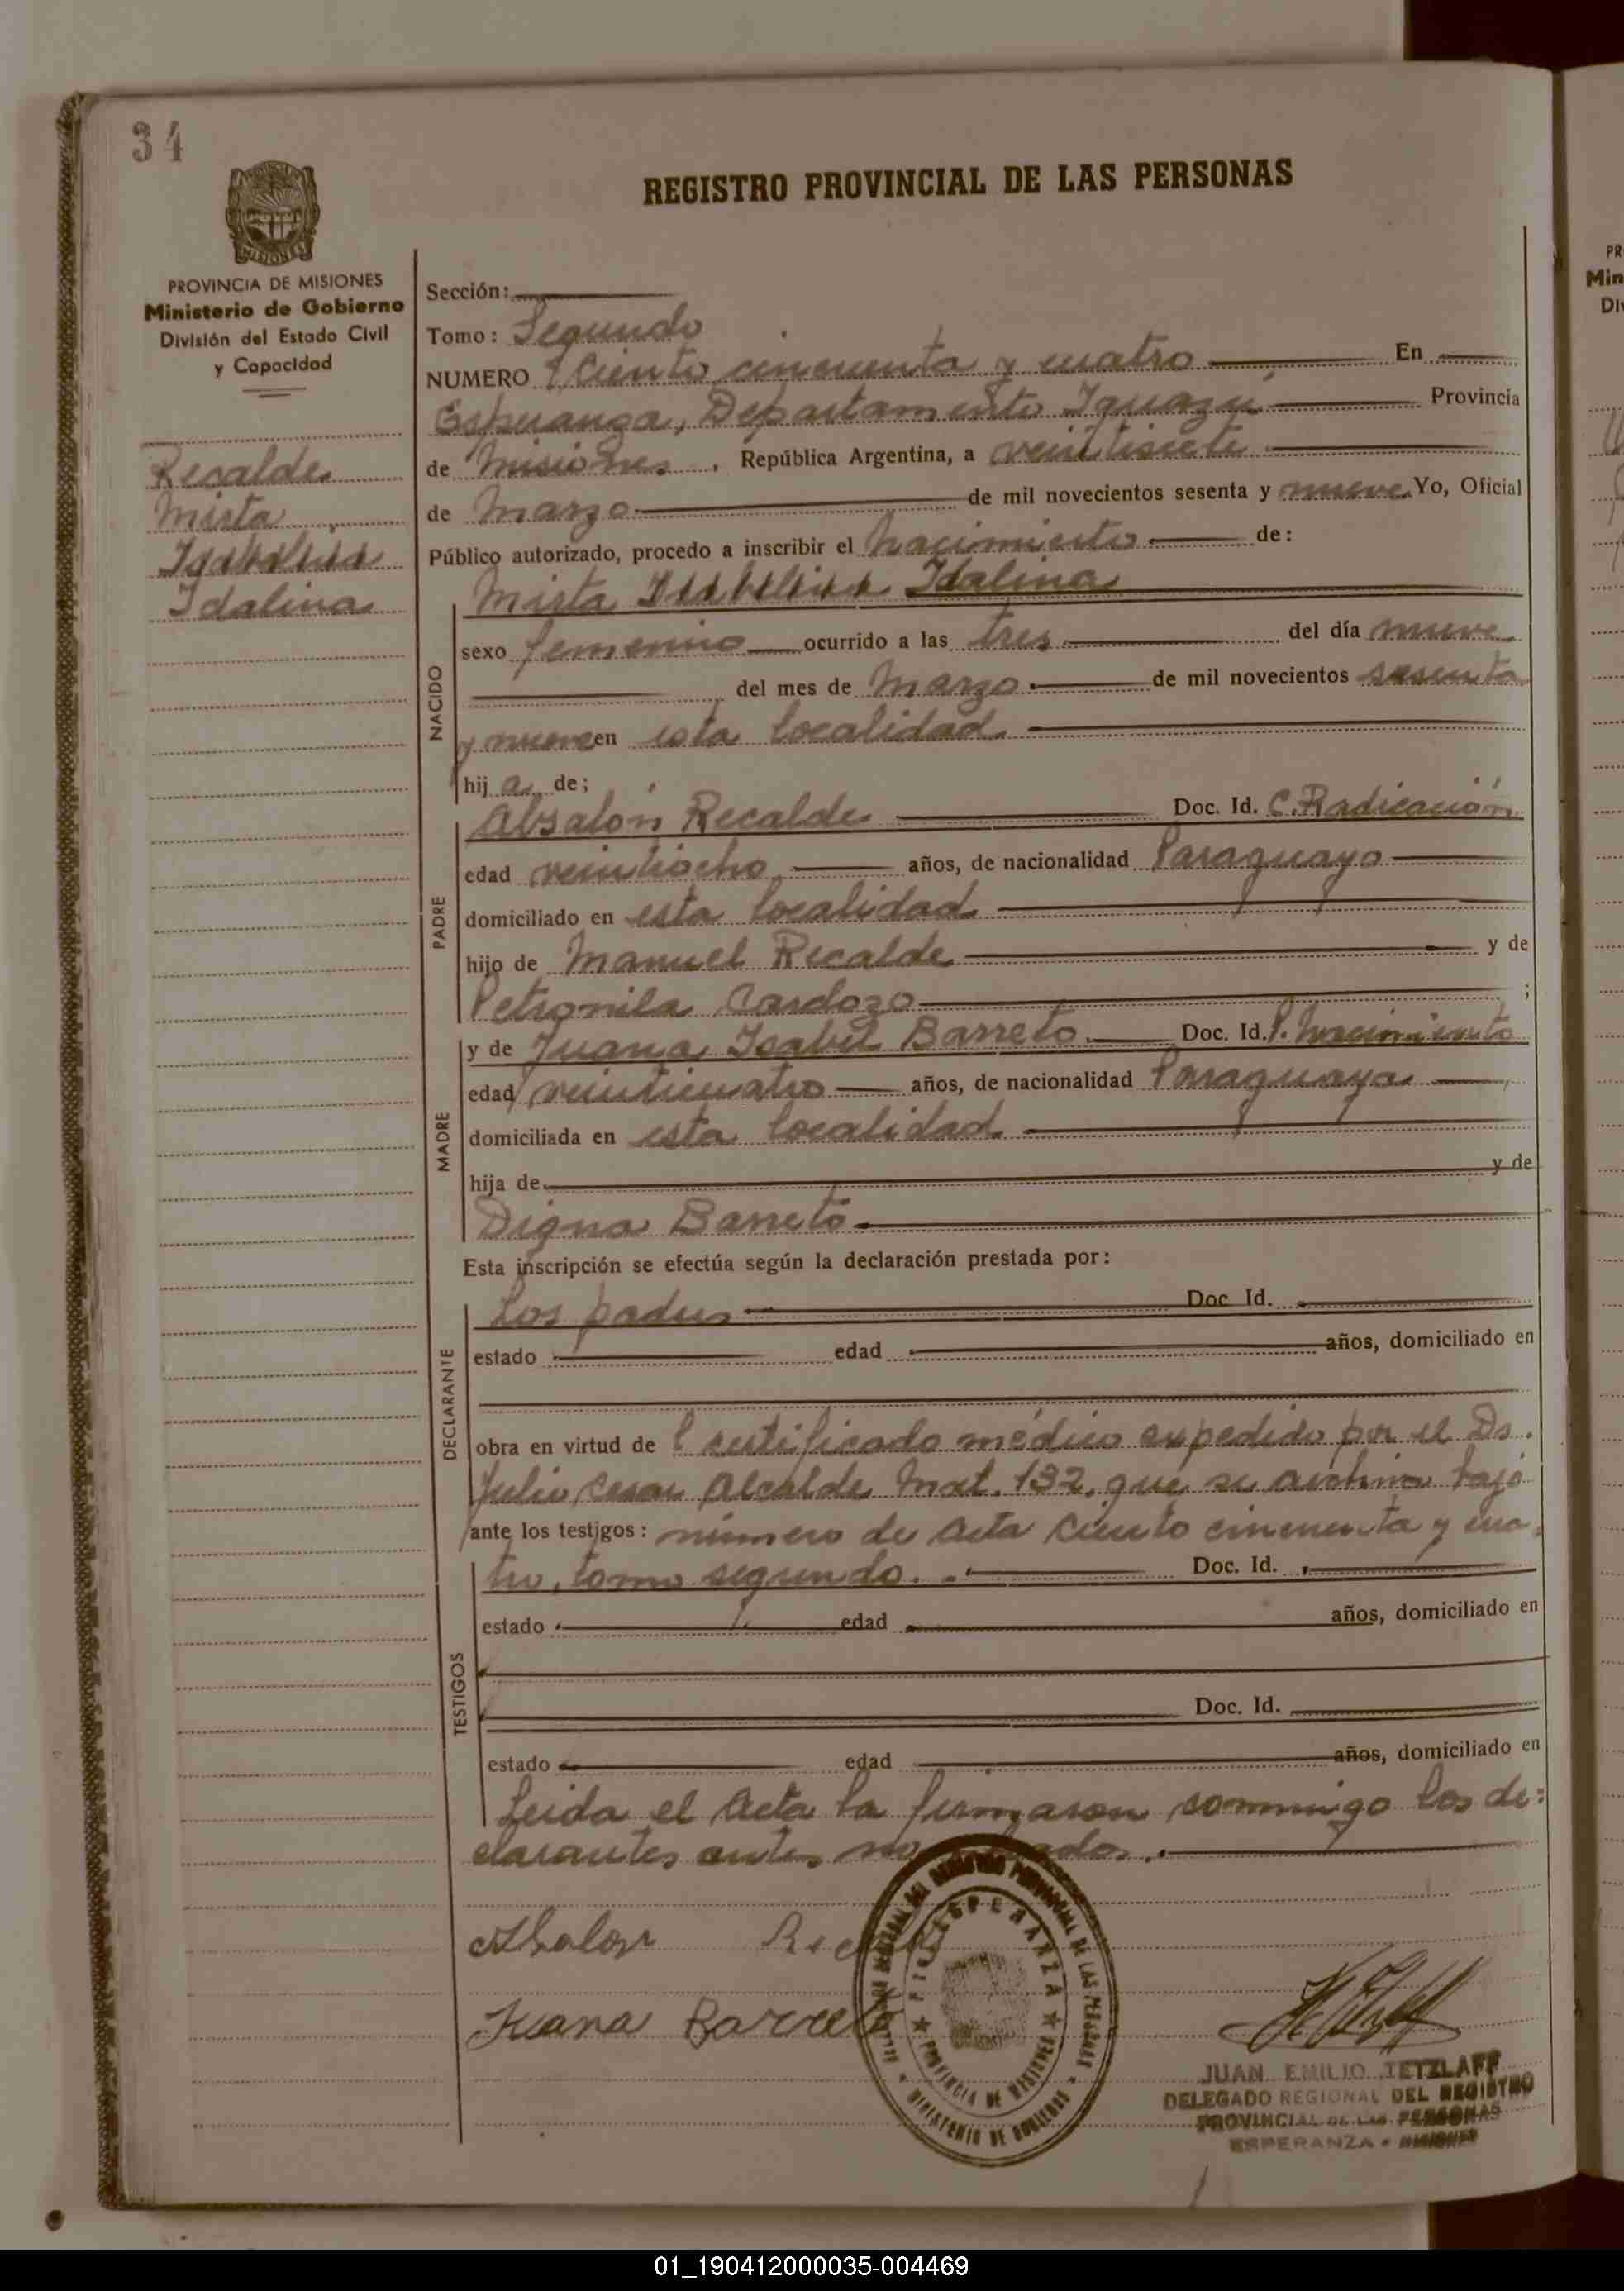 34
REGISTRO PROVINCIAL DE LAS PERSONAS
MISIONES
PROVINCIA DE MISIONES
Ministerio de Gobierno
División del Estado Civil
y Capacidad
Recalde
Mirta
Idalina
Sección:
Tomo: Segundo
NUMERO Ciento cincuenta y cuatro En
Esperanza, Departamento Iguazú Provincia
de Misiones, República Argentina, a veintisiete
de Marzo de mil novecientos sesenta y nueve Yo, Oficial
Público autorizado, procedo a inscribir el nacimiento de:
Mirta Idalina
NACIDO
sexo femenino ocurrido a las tres del día nueve
del mes de Marzo de mil novecientos sesenta
y nueve en esta localidad
hija de;
PADRE
Absalón Recalde Doc. Id. C. Radicación
edad veintiocho años, de nacionalidad Paraguayo
domiciliado en esta localidad
hijo de Manuel Recalde y de
Petronila Cardozo ;
MADRE
y de Juana Isabel Barreto Doc. Id. P. nacimiento
edad veinticuatro años, de nacionalidad Paraguaya
domiciliada en esta localidad
hija de y de
Digna Barreto
Esta inscripción se efectúa según la declaración prestada por:
DECLARANTE
Los padres Doc. Id.
estado edad años, domiciliado en
obra en virtud de certificado médico expedido por el Dr.
Julio Cesar Alcalde Mat. 132, que se archiva bajo
ante los testigos: número de Acta ciento cincuenta y cua
TESTIGOS
tro, tomo segundo. Doc. Id.
estado edad años, domiciliado en
Doc. Id.
estado edad años, domiciliado en
Leida el Acta la firmaron conmigo los de:
clarantes antes
Juana
ESPERANZA
PROVINCIA DE MISIONES
MINISTERIO DE GOBIERNO
JUAN EMILIO TETZLAFF
DELEGADO REGIONAL DEL REGISTRO
PROVINCIAL DE LAS PERSONAS
ESPERANZA - MISIONES
PR
Min
Di
01_190412000035-004469